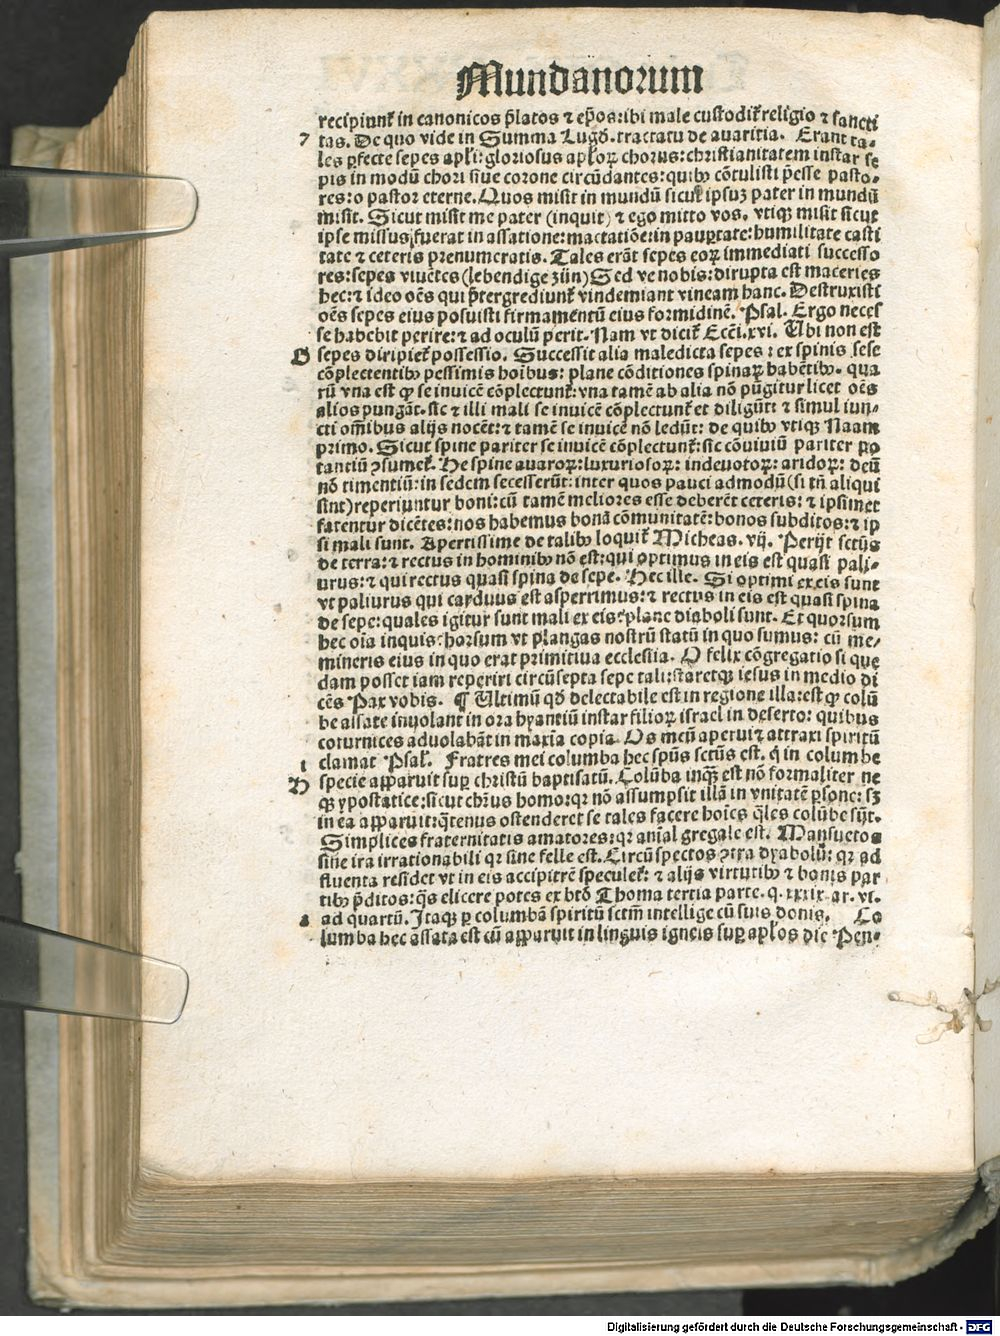 Mundanorum
recipiunt᷑ in canonicos p̄latos ⁊ ep̄os: ibi male custodit᷑ religio ⁊ sancti
7 tas. De quo vide in Summa Lugd̄. tractatu de auaritia. Erant ta-
les ꝑfecte sepes apl̄i: gloriosus apl̄oꝝ chorus: christianitatem instar se
pis in modū chori siue corone circūdantes: quibꝰ cōtulisti p̄esse pasto-
res: o pastor eterne. Quos misit in mundū sicut ipsuꝫ pater in mundū
misit. Sicut misit me pater (inquit) ⁊ ego mitto vos. vtiqꝫ misit sicut
ipse missus fuerat in assatione: mactatiōe: in pauꝑtate: humilitate casti
tate ⁊ ceteris prenumeratis. Tales erāt sepes eoꝝ immediati successo
res: sepes viuētes (lebendige zün) Sed ve nobis: dirupta est maceries
hec: ⁊ ideo oēs qui p̄tergrediunt᷑ vindemiant vineam hanc. Destruxisti
oēs sepes eius posuisti firmamentū eius formidinē. Psal. Ergo neces
se habebit perire: ⁊ ad oculū perit. Nam vt dicit᷑ Ecc̄i. xvi. Ubi non est
O sepes diripiet᷑ possessio. Successit alia maledicta sepes: ex spinis sese
cōplectentibꝰ pessimis hoībus: plane cōditiones spinaꝝ habētibꝰ. qua
rū vna est ꝙ se inuicē cōplectunt᷑: vna tamē ab alia nō pūgitur licet oēs
alios pungāt. sic ⁊ illi mali se inuicē cōplectunt᷑ et diligūt ⁊ simul iun-
cti om̄ibus alijs nocēt: ⁊ tamē se inuicē nō ledūt: de quibꝰ vtiqꝫ Naam
primo. Sicut spine pariter se inuicē cōplectunt᷑: sic cōuiuiū pariter po
tantiū ꝯsumet᷑. He spine auaroꝝ: luxuriosoꝝ: indeuotoꝝ: aridoꝝ: deū
nō timentiū: in sedem secesserūt: inter quos pauci admodū (si tn̄ aliqui
sint) reperiuntur boni: cū tamē meliores esse deberēt ceteris: ⁊ ipsimet
fatentur dicētes: nos habemus bonā cōmunitatē: bonos subditos: ⁊ ip
si mali sunt. Apertissime de talibꝰ loquit᷑ Micheas. vij. Perijt sctūs
de terra: ⁊ rectus in hominibꝰ nō est: qui optimus in eis est quasi pali-
urus: ⁊ qui rectus quasi spina de sepe. Hec ille. Si optimi ex eis sunt
vt paliurus qui carduus est asperrimus: ⁊ rectus in eis est quasi spina
de sepe: quales igitur sunt mali ex eis: plane diaboli sunt. Et quorsum
hec oīa inquis: horsum vt plangas nostrū statū in quo sumus: cū me-
mineris eius in quo erat primitiua ecclesiia. O felix cōgregatio si que
dam posset iam reperiri circūsepta sepe tali: staretqꝫ iesus in medio di
cēs Pax vobis. ¶ Ultimū qd̄ delectabile est in regione illa: est ꝙ colū
be assate inuolant in ora hyantiū instar filioꝝ israel in deserto: quibus
coturnices aduolabāt in maxīa copia. Os meū aperui ⁊ attraxi spiritū
i clamat Psal̄. Fratres mei columba hec spūs sctūs est. q̇ in columbe
specie apparuit suꝑ christū baptisatū. Colūba inqꝫ est nō formaliter ne
qꝫ ypostatice: sicut chr̄us homo: qr nō assumpsit illā in vnitatē ꝑsone: sꝫ
in ea apparuit: q̄tenus ostenderet se tales facere hoīes q̄les colūbe sūt.
Simplices fraternitatis amatores: qr anīal gregale est. Mansuetos
sine ira irrationabili qr sine felle est. Circūspectos ꝯtra dyabolū: qr ad
fluenta residet vt in eis accipitrē speculet᷑: ⁊ alijs virtutibꝰ ⁊ bonis par
tibꝰ p̄ditos: q̄s elicere potes ex btō Thoma tertia parte. q. xxxix. ar. vi.
ad quartū. Itaqꝫ ꝑ columbā spiritū sctm̄ intellige cū suis donis. Co
lumba hec assata est cū apparuit in linguis igneis suꝑ apl̄os die Pen-